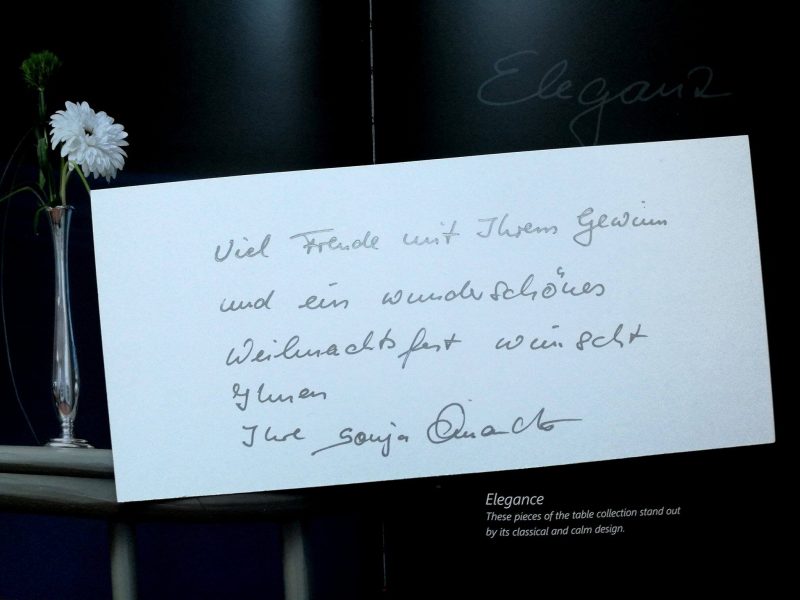 Eleganz
Viel Freude mit Ihrem Gewinn
und ein wunderschönes
Weihnachtsfest wünscht
Ihnen
Ihre Sonja
Elegance
These pieces of the table collection stand out
by its classical and calm design.